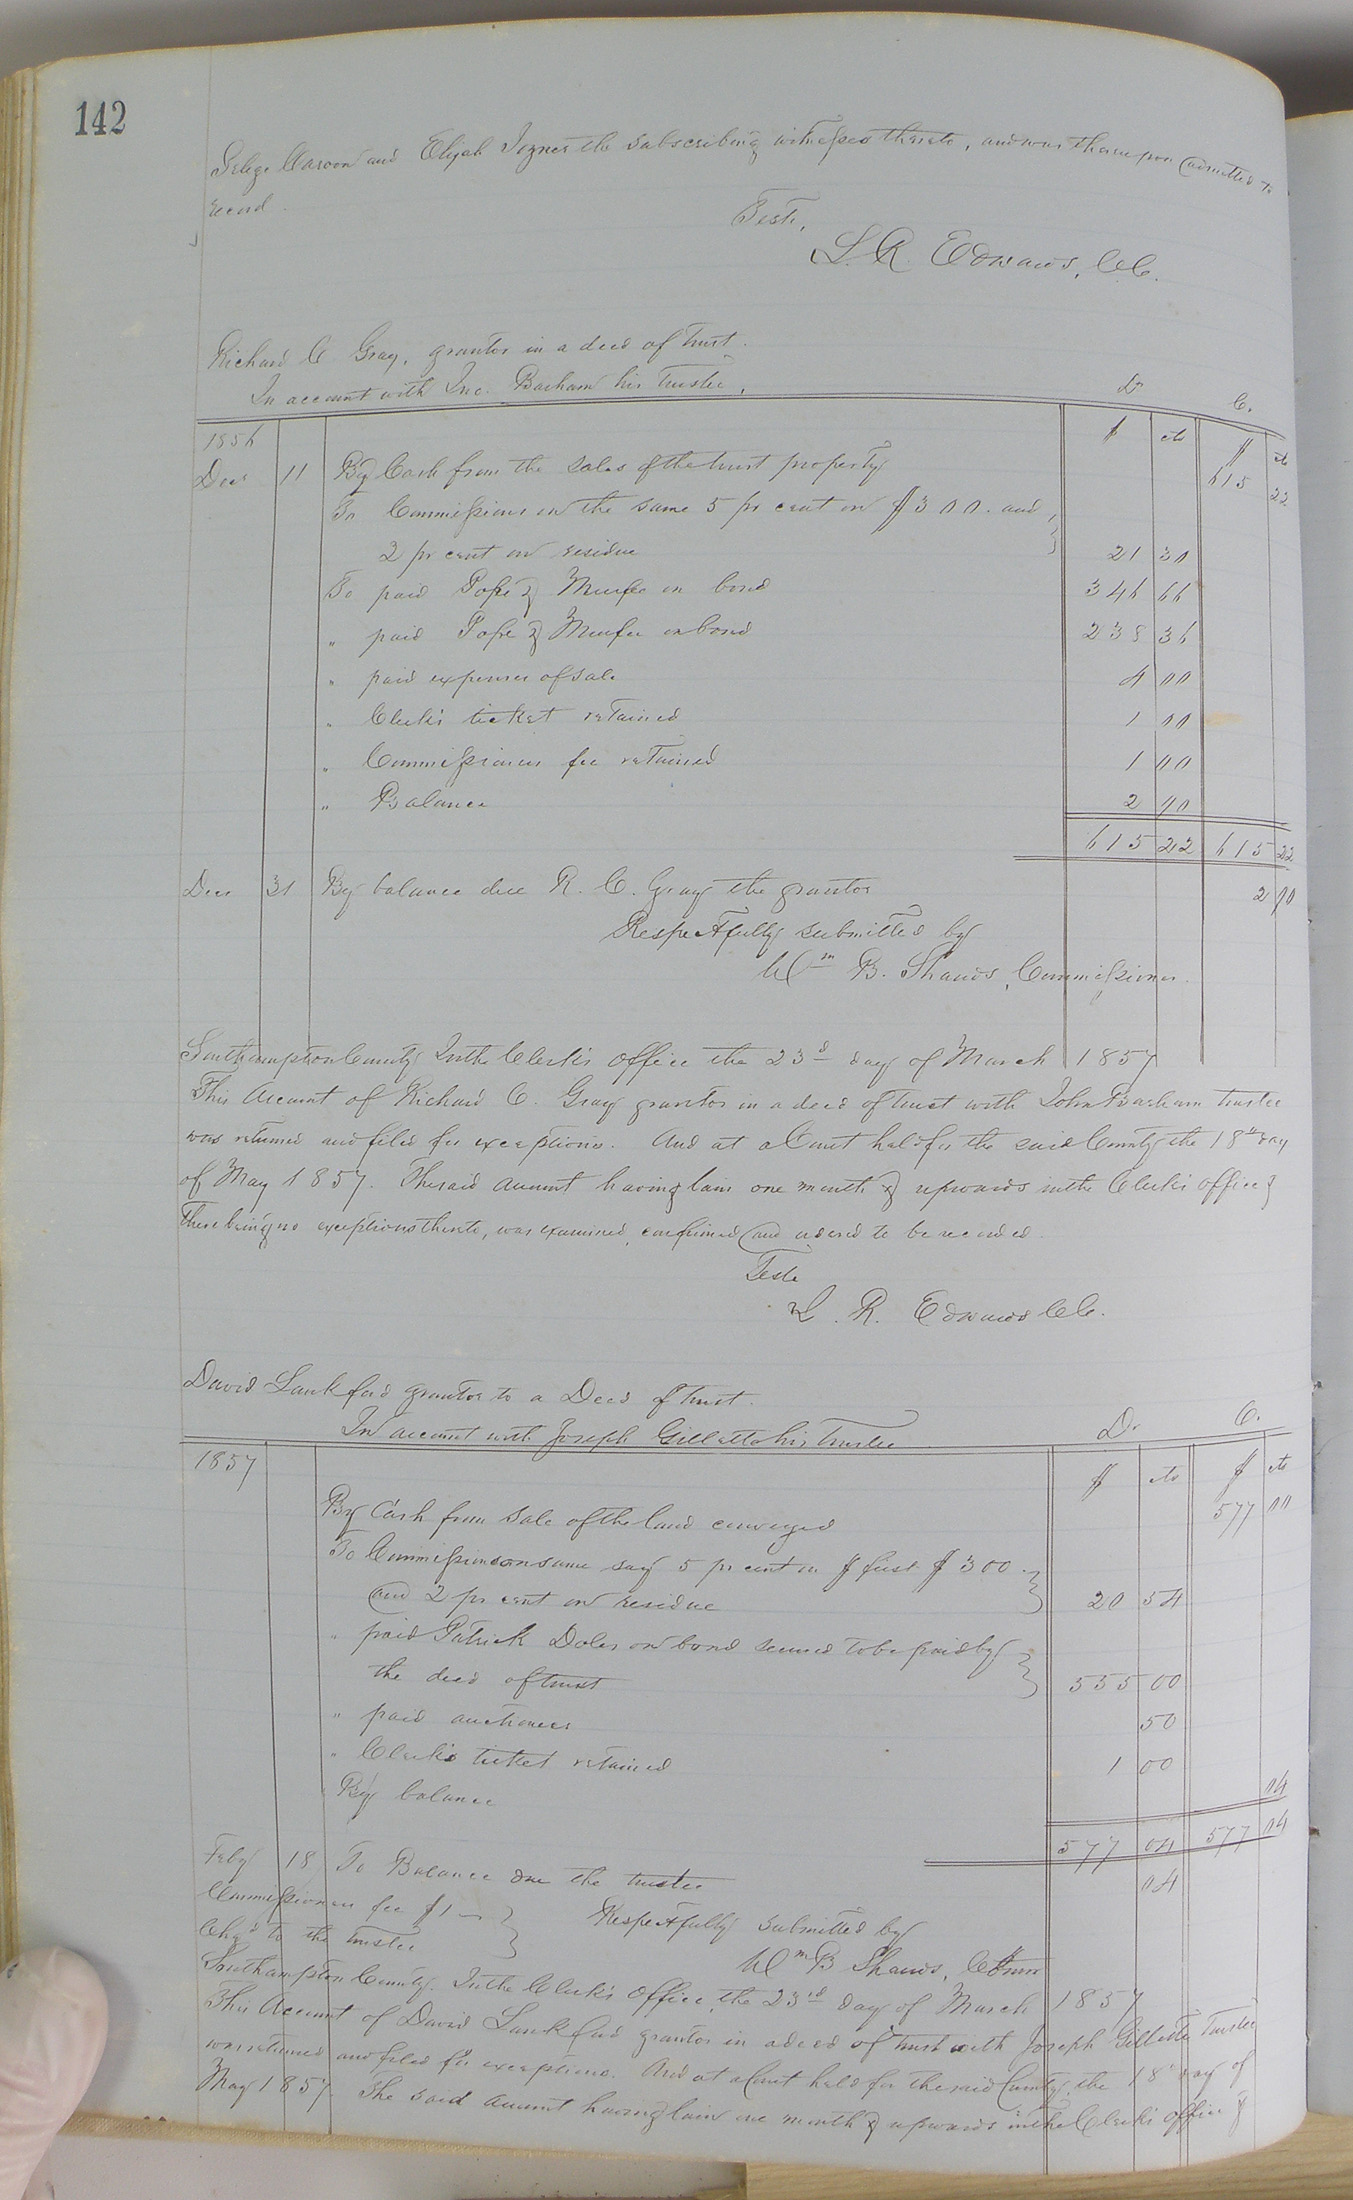 142
and Elijah Joyner the subscribing witnesses thereto, and was thereupon admitted to
record.
Teste,
L. R. Edwards, C.C.
Richard C Gray, grantor in a deed of Trust.
In account with Jno. Barham his Trustee,
Dr C.
1856 $ cts $ cts
Decr 11 By Cash from the sales of the trust property 615 22
To Commissions on the same 5 pr cent on $300. and
2 pr cent on residue 21 30
To paid Pope & Murfee on bond 346 66
" paid Pope & Murfee on bond 238 36
" paid expenses of sale 4 00
" Clerk's ticket retained 1 00
" Commissioners fee retained 1 00
" Balance 2 90
615 22 615 22
Decr 31 By balance due R. C. Gray the grantor 2 90
Respectfully submitted by
Wm B. Shands, Commissioner.
Southampton County In the Clerk's office the 23d day of March 1857
This Account of Richard C. Gray grantor in a deed of trust with John Barham trustee
was returned and filed for exceptions. And at a Court held for the said County the 18th day
of May 1857. The said account having lain one month & upwards in the Clerk's office &
there being no exceptions thereto, was examined, confirmed and ordered to be recorded.
Teste
L. R. Edwards C.C.
David Lankford grantor to a Deed of trust.
In account with Joseph Gillette his Trustee Dr C.
1857 $ cts $ cts
By Cash from sale of the land conveyed 577 00
To Commissions on same say 5 pr cent on first $300.
and 2 pr cent on residue 20 54
" paid Patrick Doles on bond secured to be paid by
the deed of trust 555 00
" paid auctioneer 50
" Clerk's ticket retained 1 00
By balance 04
577 04 577 04
Feby 18 To Balance due the trustee 04
Commissioners fee $1—
Chgd to the trustee
Respectfully submitted by
Wm B Shands, Comr
Southampton County. In the Clerk's Office, the 23rd day of March 1857
This Account of David Lankford grantor in a deed of trust with Joseph Gillette Trustee
was returned and filed for exceptions. And at a Court held for the said County, the 18th day of
May 1857 The said account having lain one month & upwards in the Clerk's office &